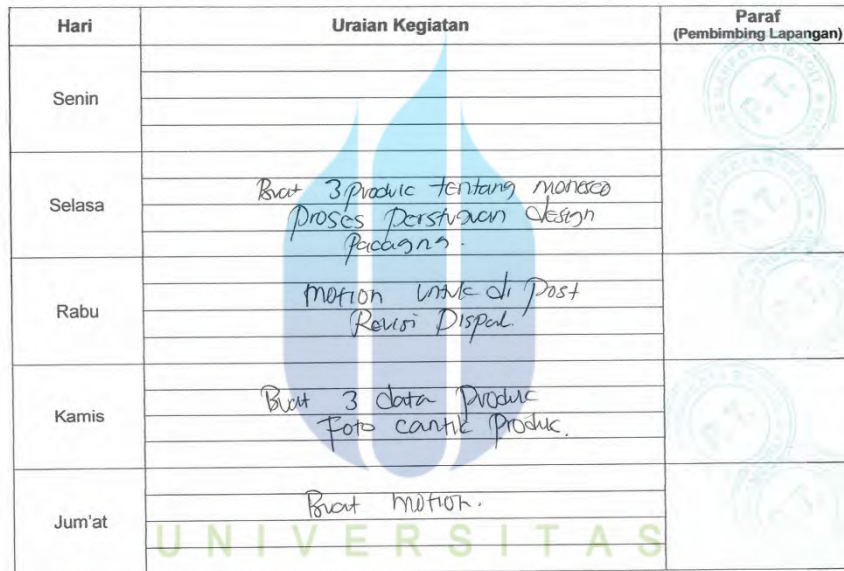 Hari
Uraian Kegiatan
Paraf
(Pembimbing Lapangan)
Senin
Selasa
Buat 3 produk tentang
proses persetujuan design
Rabu
motion untuk di Post
Revisi
Kamis
Buat 3 data produk
Foto cantik produk.
Jum'at
Buat motion.
UNIVERSITAS
P.T.
P.T.